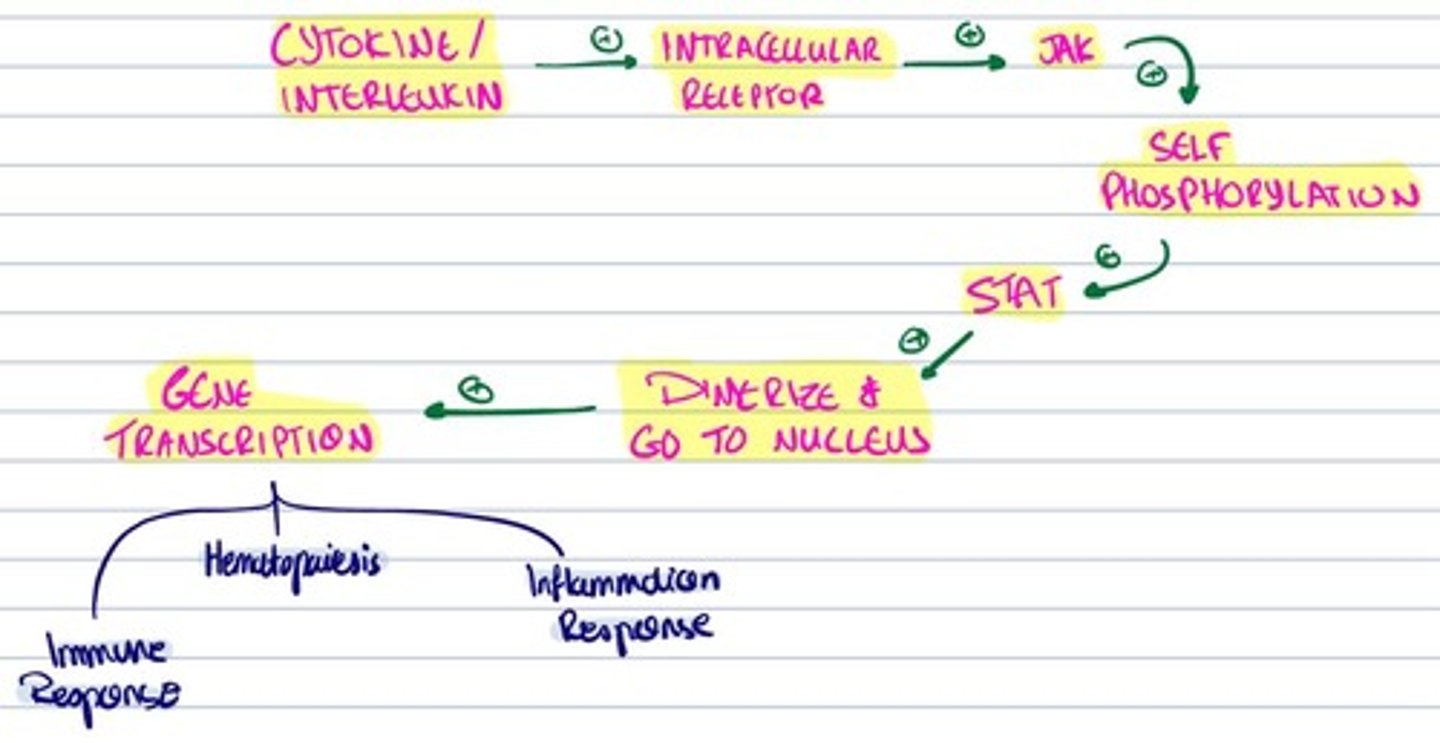 CYTOKINE/
INTERLEUKIN
+
INTRACELLULAR
RECEPTOR
+
JAK
+
SELF
PHOSPHORYLATION
+
STAT
+
DIMERIZE &
GO TO NUCLEUS
+
GENE
TRANSCRIPTION
Hematopoiesis
Inflammation
Response
Immune
Response